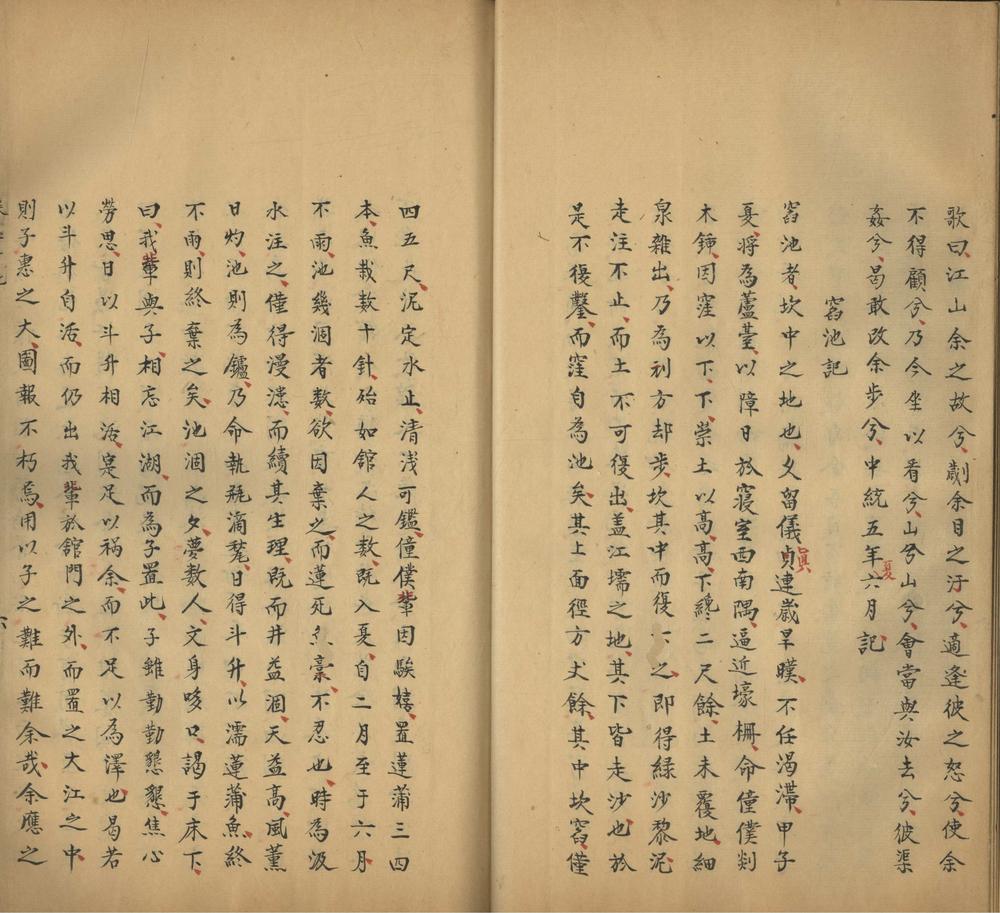 歌曰江山余之故兮劌余目之汙兮適逢彼之怒兮使余
不得顧兮乃今坐以看兮山兮山兮會當與汝去兮彼渠
姦兮曷敢改余步兮中統五年夏六月記
窞池記
窞池者坎中之地也久留儀貞眞連歲旱暵不任渴滯甲子
夏將為蘆䑓以障日於寢室西南隅逼近壕柵命僮僕剡
木鍤因窪以下下崇土以高高下纔二尺餘土未覆地細
泉雜出乃為刓方却步坎其中而復下之即得緑沙黎泥
走注不止而土不可復出盖江壖之地其下皆走沙也於
是不復鑿而窪自為池矣其上面徑方丈餘其中坎窞僅
四五尺泥定水止清浅可鑑僮僕輩因騃嬉置蓮蒲三四
本魚栽数十針殆如舘人之数既入夏自二月至于六月
不雨池幾涸者数欲因棄之而蓮死魚槁不忍也時為汲
水注之僅得漫漶而續其生理既而井益涸天益高風薰
日灼池則為鑪乃命執瓶滴甃日得斗升以濡蓮蒲魚終
不雨則終棄之矣池涸之夕夢数人文身哆口謁于床下
曰我輩與子相忘江湖而為子置此子雖勤勤懇懇焦心
勞思日以斗升相活寔足以禍余而不足以為澤也曷若
以斗升自活而仍出我輩於舘門之外而置之大江之中
則子惠之大圖報不朽焉用以子之難而難余哉余應之